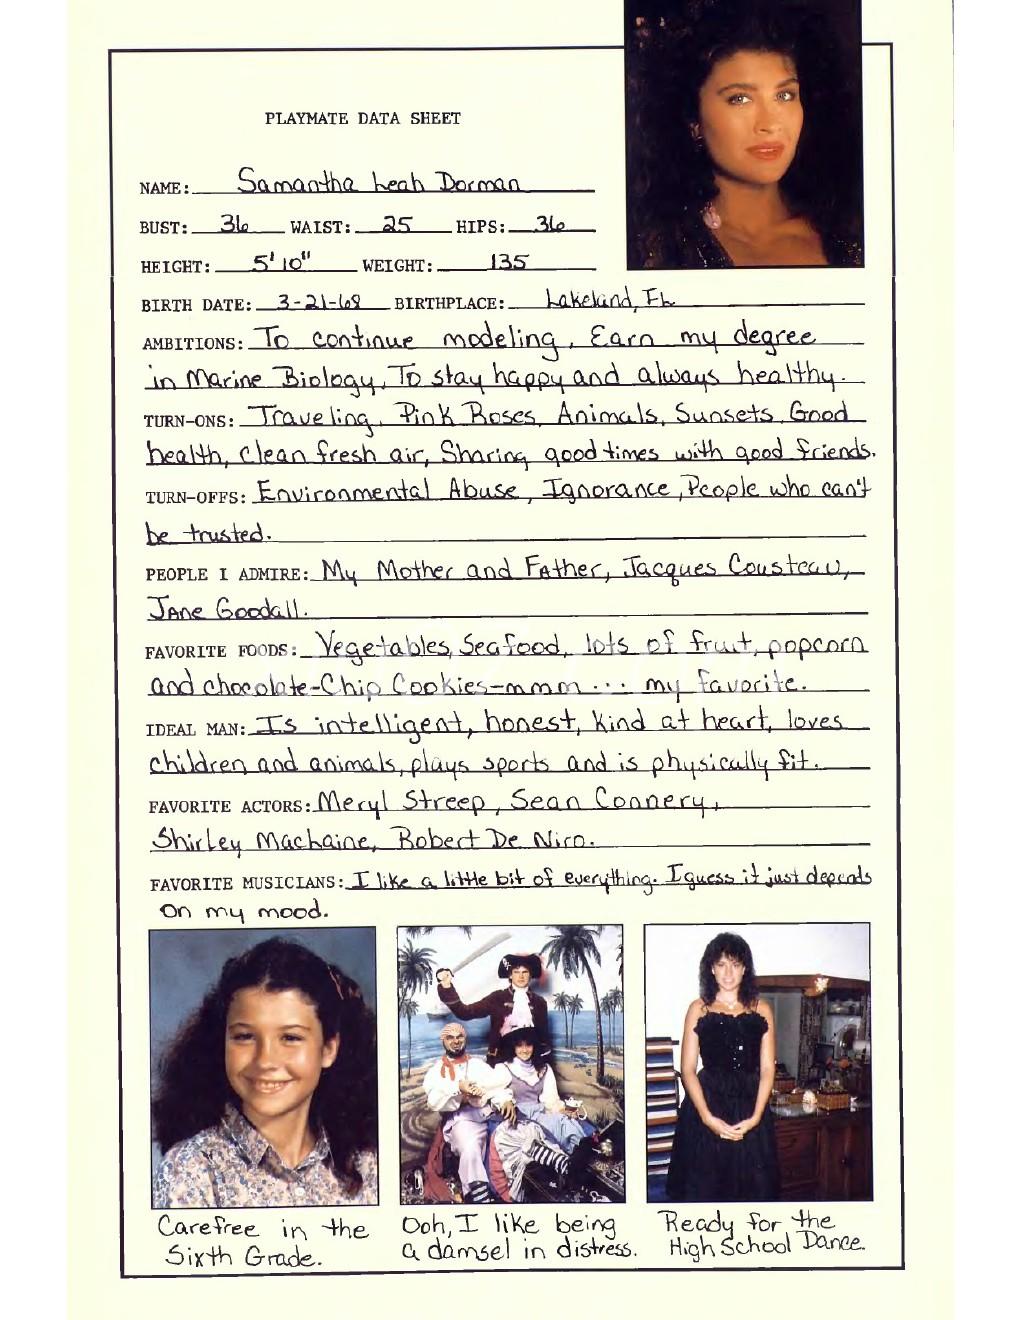 PLAYMATE DATA SHEET
NAME: Samantha Leah Dorman
BUST: 36 WAIST: 25 HIPS: 36
HEIGHT: 5'10" WEIGHT: 135
BIRTH DATE: 3-21-68 BIRTHPLACE: Lakeland, FL
AMBITIONS: To continue modeling, Earn my degree
in Marine Biology, To stay happy and always healthy.
TURN-ONS: Traveling, Pink Roses, Animals, Sunsets, Good
health, clean fresh air, Sharing good times with good friends.
TURN-OFFS: Environmental Abuse, Ignorance, People who can't
be trusted.
PEOPLE I ADMIRE: My Mother and Father, Jacques Cousteau,
Jane Goodall.
FAVORITE FOODS: Vegetables, Seafood, lots of fruit, popcorn
and chocolate-Chip Cookies-mmm... my favorite.
IDEAL MAN: Is intelligent, honest, kind at heart, loves
children and animals, plays sports and is physically fit.
FAVORITE ACTORS: Meryl Streep, Sean Connery,
Shirley MacLaine, Robert De Niro.
FAVORITE MUSICIANS: I like a little bit of everything. I guess it just depends
on my mood.
Carefree in the
Sixth Grade.
Ooh, I like being
a damsel in distress.
Ready for the
High School Dance.